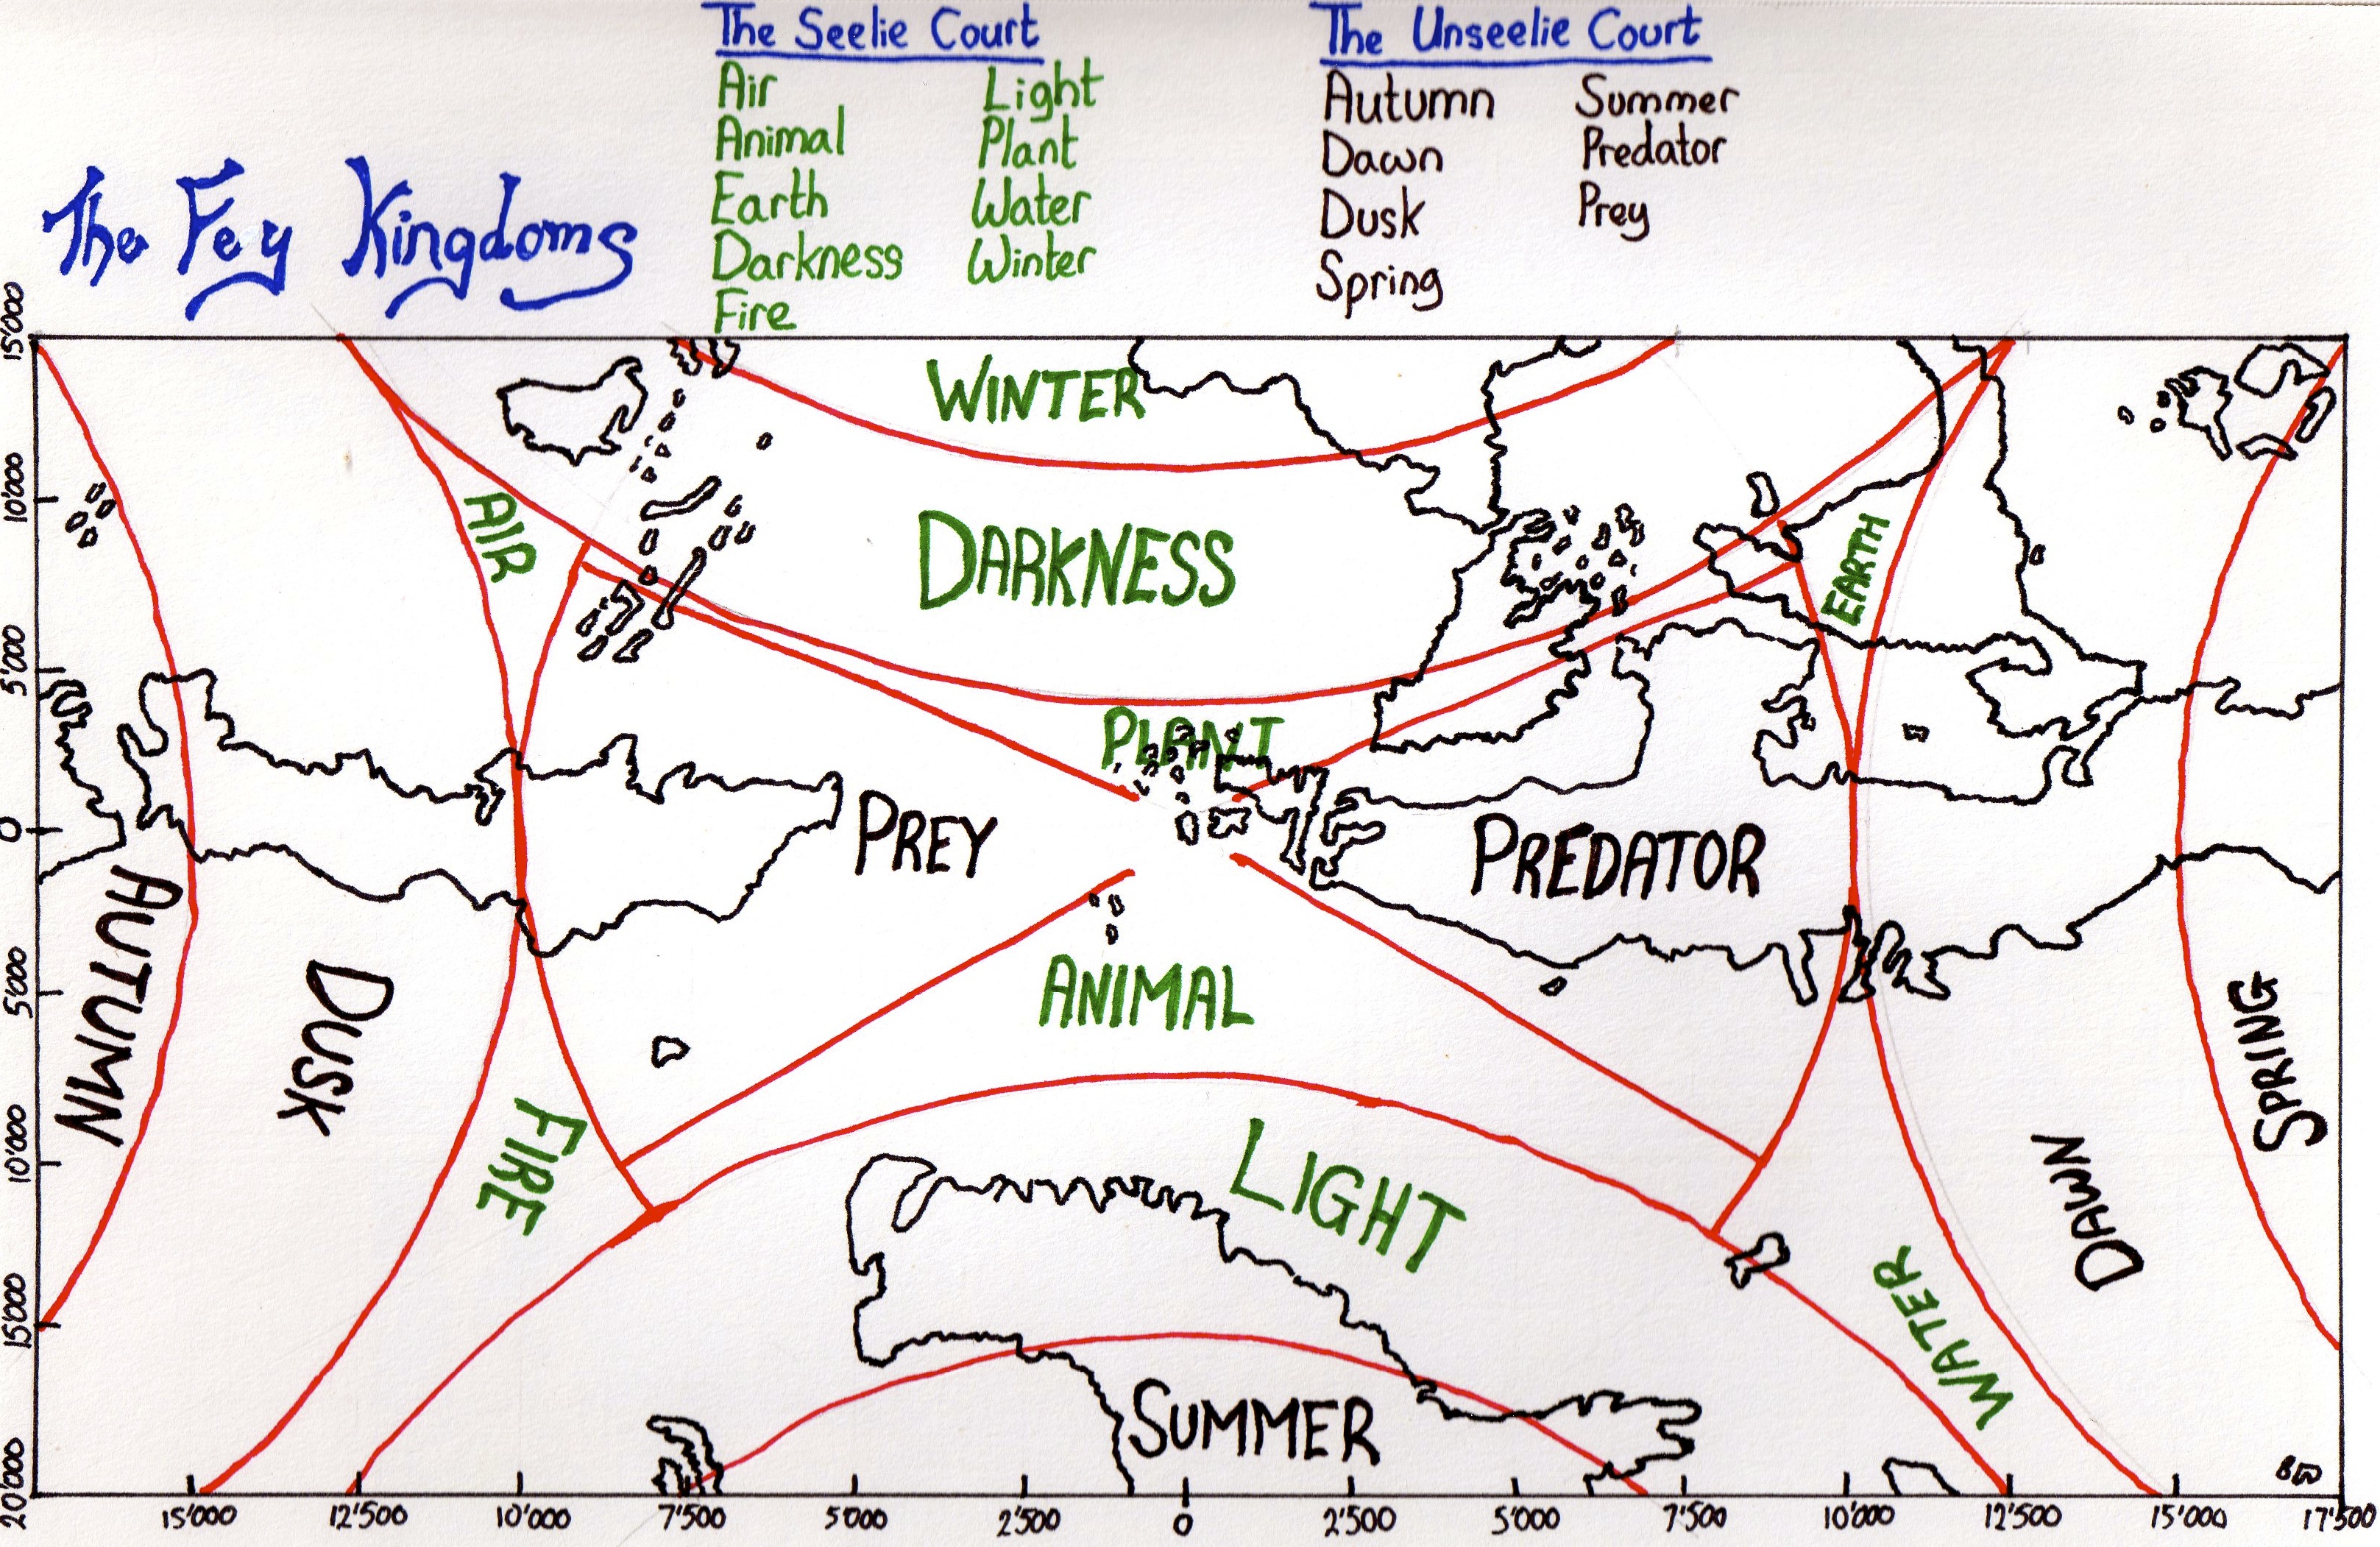 The Seelie Court
The Unseelie Court
Air Light
Animal Plant
Earth Water
Darkness Winter
Fire
Autumn Summer
Dawn Predator
Dusk Prey
Spring
The Fey Kingdoms
15'000
10'000
5'000
0
5'000
10'000
15'000
20'000
WINTER
AIR
DARKNESS
EARTH
PLANT
PREY
PREDATOR
AUTUMN
DUSK
ANIMAL
SPRING
FIRE
LIGHT
DAWN
WATER
SUMMER
BW
15'000 12'500 10'000 7'500 5'000 2'500 0 2'500 5'000 7'500 10'000 12'500 15'000 17'500